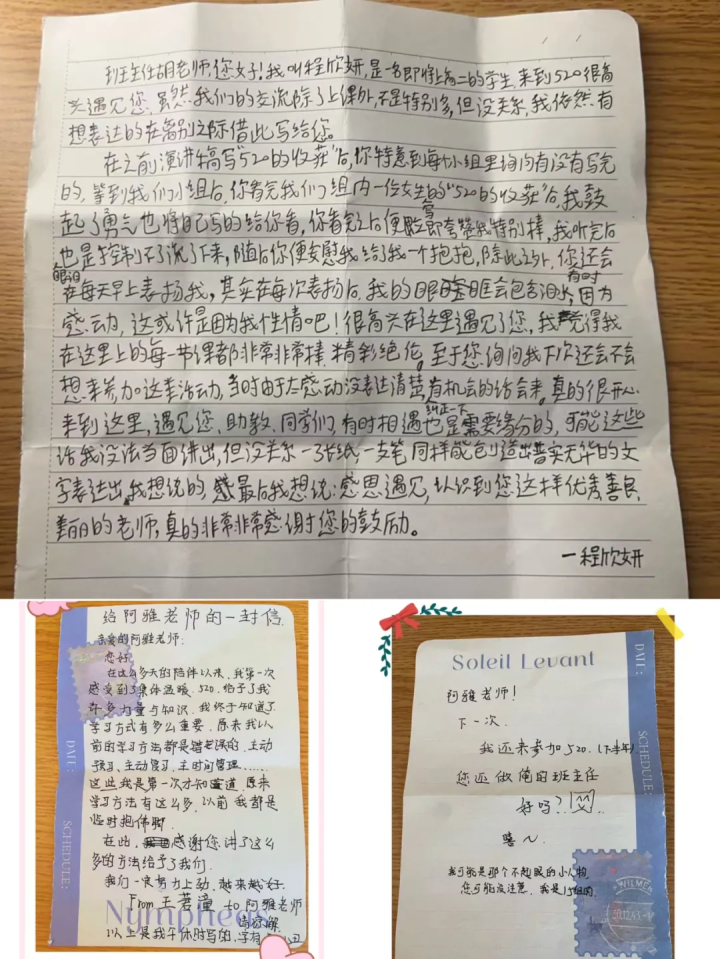 班主任胡老师,您好!我叫程欣妍,是一名即将上高二的学生,来到520很高
兴遇见您,虽然我们的交流除了上课外,不是特别多,但没关系,我依然有
想表达的在离别之际借此写给您。
在之前演讲稿写“520的收获”后,你特意到每个小组里询问有没有写完
的,等到我们小组后,你看完我们组内一位女生的“520的收获”后,我鼓
起了勇气也将自己写的给你看,你看完之后便立即夸赞我特别棒,我听完后
眼泪
也是控制不了流了下来,随后你便安慰我给了我一个抱抱,除此之外,您还会
在每天早上表扬我,其实在每次表扬后,我的眼眶会包含泪水,因为
有时
感动,这或许是因为我性情吧!很高兴在这里遇见了您,我觉得我
在这里上的每一节课都非常非常棒,精彩绝伦。至于您询问我下次还会不会
想来参加这类活动,当时由于太感动没表达清楚,有机会的话会来,真的很开心
来到这里,遇见您、助教、同学们,有时相遇也是需要缘分的,可能这些
纠正一下
话我没法当面讲出,但没关系一张纸一支笔同样能创造出普实无华的文
字表达出我想说的,最后我想说:感恩遇见,认识到您这样优秀善良
美丽的老师,真的非常非常感谢对您的鼓励。
一程欣妍
给阿雅老师的一封信
亲爱的阿雅老师:
您好
在这么多天的陪伴以来,我第一次
感受到了集体温暖,520,给予了我
许多力量与知识,我终于知道了
学习方式有多么重要,原来我以
前的学习方法都是错误的,主动
预习、主动复习、主时间管理……
这些我是第一次才知道,原来
学习方法有这么多,以前我都是
临时抱佛脚
在此,感谢您讲了这么
多的方法给予了我们.
我们一定努力上劲,越来越好.
From 王若潼 to 阿雅老师
请谅解
以上是我午休时写的,字有
Nympheas
DATE:
SCHEDULE:
Soleil Levant
阿雅老师!
下一次,
我还来参加520.(下半年)
您还做俺的班主任
好吗?
嘻~
我可能是那个不起眼的小人物,
您可能没注意,我是15组的
DATE:
SCHEDULE: